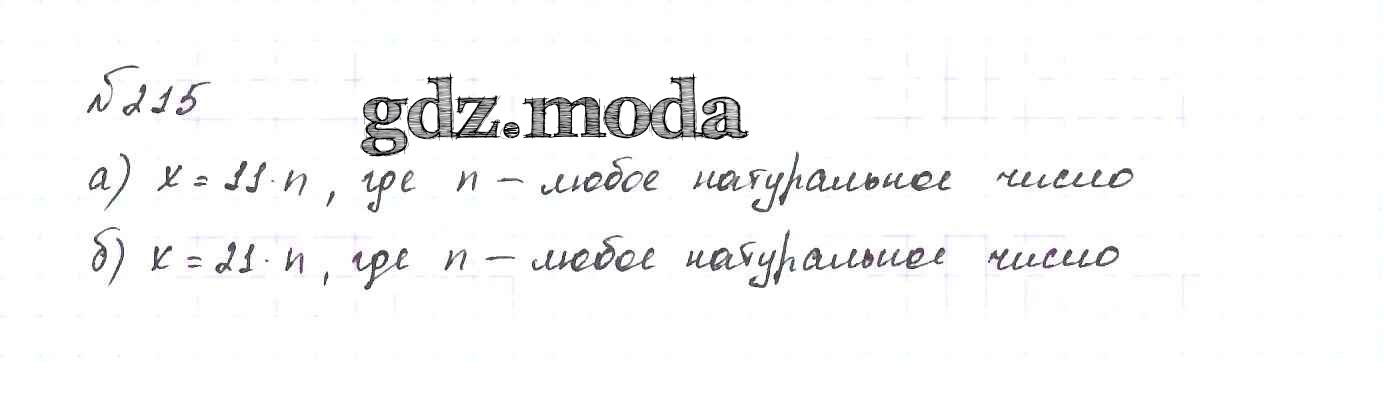 № 215
gdz.moda
а) x = 11 · n, где n – любое натуральное число
б) x = 21 · n, где n – любое натуральное число